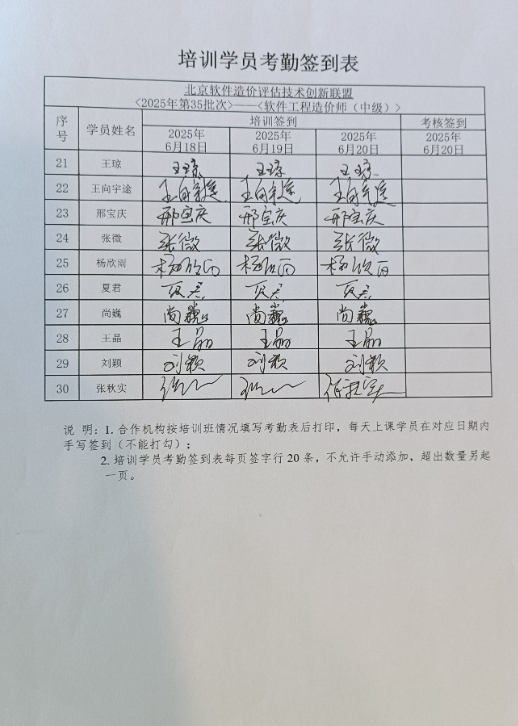 培训学员考勤签到表
北京软件造价评估技术创新联盟
<2025年第35批次>——<软件工程造价师（中级）>
序号 学员姓名 培训签到 考核签到
2025年6月18日 2025年6月19日 2025年6月20日 2025年6月20日
21 王琼 王琼 王琼 王琼
22 王向宇途 王向宇途 王向宇途 王向宇途
23 邢宝庆 邢宝庆 邢宝庆 邢宝庆
24 张微 张微 张微 张微
25 杨欣雨 杨欣雨 杨欣雨 杨欣雨
26 夏君 夏君 夏君 夏君
27 尚巍 尚巍 尚巍 尚巍
28 王晶 王晶 王晶 王晶
29 刘颖 刘颖 刘颖 刘颖
30 张秋实 张秋实
说 明：1. 合作机构按培训班情况填写考勤表后打印，每天上课学员在对应日期内
手写签到（不能打勾）；
2. 培训学员考勤签到表每页签字行 20 条，不允许手动添加，超出数量另起
一页。